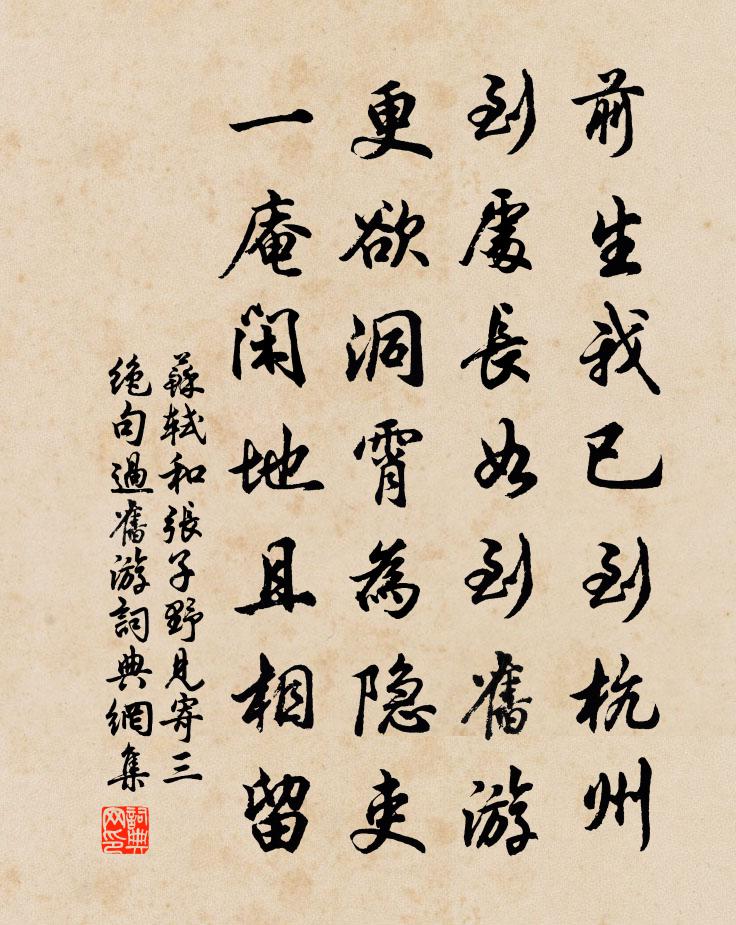 前生我已到杭州
到處長如到舊游
更欲洞霄為隐吏
一庵閑地且相留
蘇軾和張子野見寄三
絶句過舊游詞典網集
詞典网印